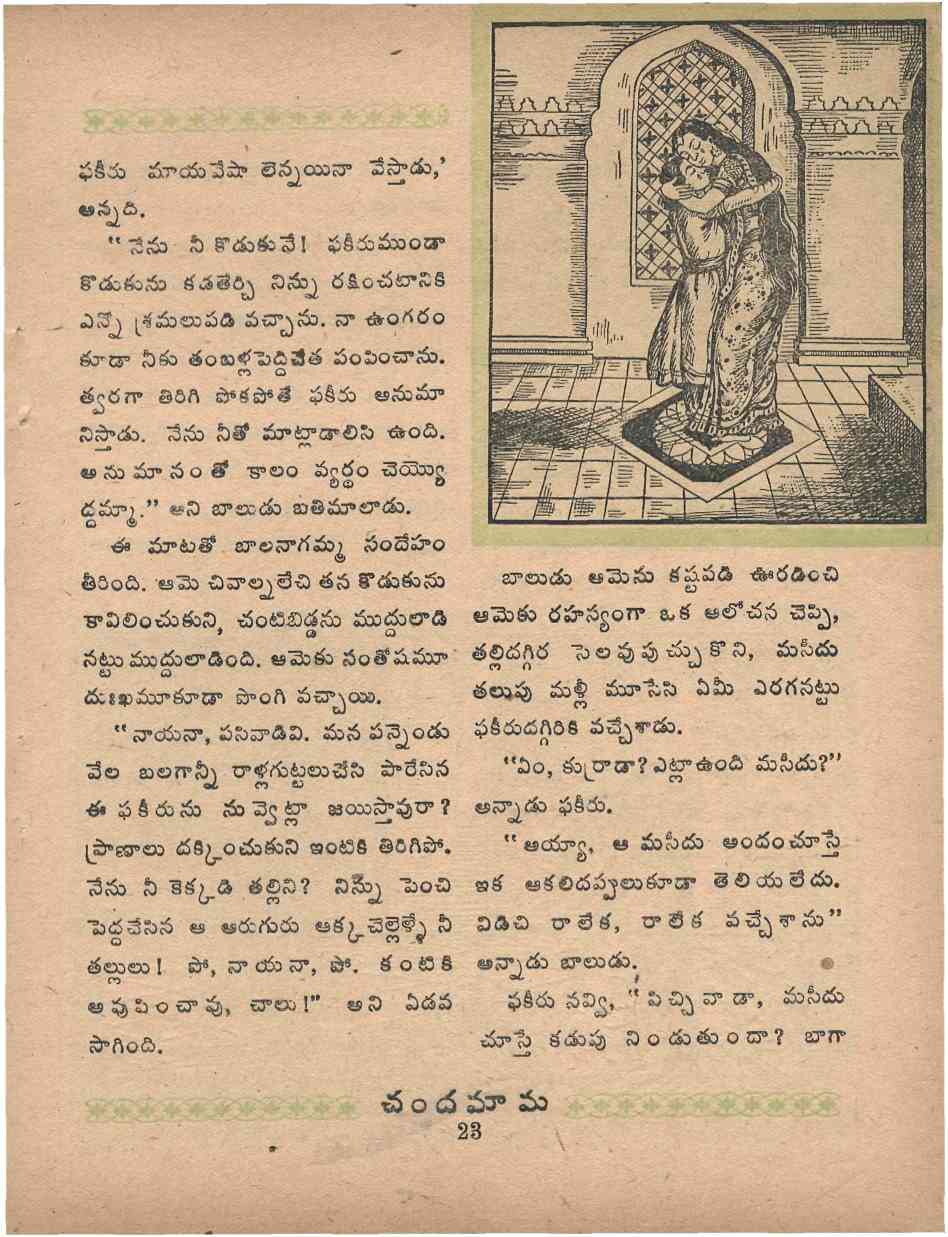 ఫకీరు మాయవేషా లెన్నయినా వేస్తాడు,'
అన్నది.
“నేను నీ కొడుకునే! ఫకీరుముండా
కొడుకును కడతేర్చి నిన్ను రక్షించటానికి
ఎన్నో శ్రమలుపడి వచ్చాను. నా ఉంగరం
కూడా నీకు తంబళ్లపెద్దిచేత పంపించాను.
త్వరగా తిరిగి పోకపోతే ఫకీరు అనుమా
నిస్తాడు. నేను నీతో మాట్లాడాలిసి ఉంది.
అనుమానంతో కాలం వ్యర్థం చెయ్యొ
ద్దమ్మా.” అని బాలుడు బతిమాలాడు.
ఈ మాటతో బాలనాగమ్మ సందేహం
తీరింది. ఆమె చివాల్నలేచి తన కొడుకును
కావిలించుకుని, చంటిబిడ్డను ముద్దులాడి
నట్టు ముద్దులాడింది. ఆమెకు సంతోషమూ
దుఃఖమూకూడా పొంగి వచ్చాయి.
“నాయనా, పసివాడివి. మన పన్నెండు
వేల బలగాన్నీ రాళ్లగుట్టలుచేసి పారేసిన
ఈ ఫకీరును నువ్వెట్లా జయిస్తావురా?
ప్రాణాలు దక్కించుకుని ఇంటికి తిరిగిపో.
నేను నీ కెక్కడి తల్లిని? నిన్ను పెంచి
పెద్దచేసిన ఆ ఆరుగురు అక్కచెల్లెళ్ళే నీ
తల్లులు! పో, నాయనా, పో. కంటికి
అవుపించావు, చాలు!” అని ఏడవ
సాగింది.
బాలుడు ఆమెను కష్టపడి ఊరడించి
ఆమెకు రహస్యంగా ఒక ఆలోచన చెప్పి,
తల్లిదగ్గిర సెలవుపుచ్చుకొని, మసీదు
తలుపు మళ్లీ మూసేసి ఏమీ ఎరగనట్టు
ఫకీరుదగ్గిరికి వచ్చేశాడు.
“ఏం, కుర్రాడా? ఎట్లాఉంది మసీదు?”
అన్నాడు ఫకీరు.
“అయ్యా, ఆ మసీదు అందంచూస్తే
ఇక ఆకలిదప్పులుకూడా తెలియలేదు.
విడిచి రాలేక, రాలేక వచ్చేశాను”
అన్నాడు బాలుడు.
ఫకీరు నవ్వి, “పిచ్చివాడా, మసీదు
చూస్తే కడుపు నిండుతుందా? బాగా
చందమామ
23